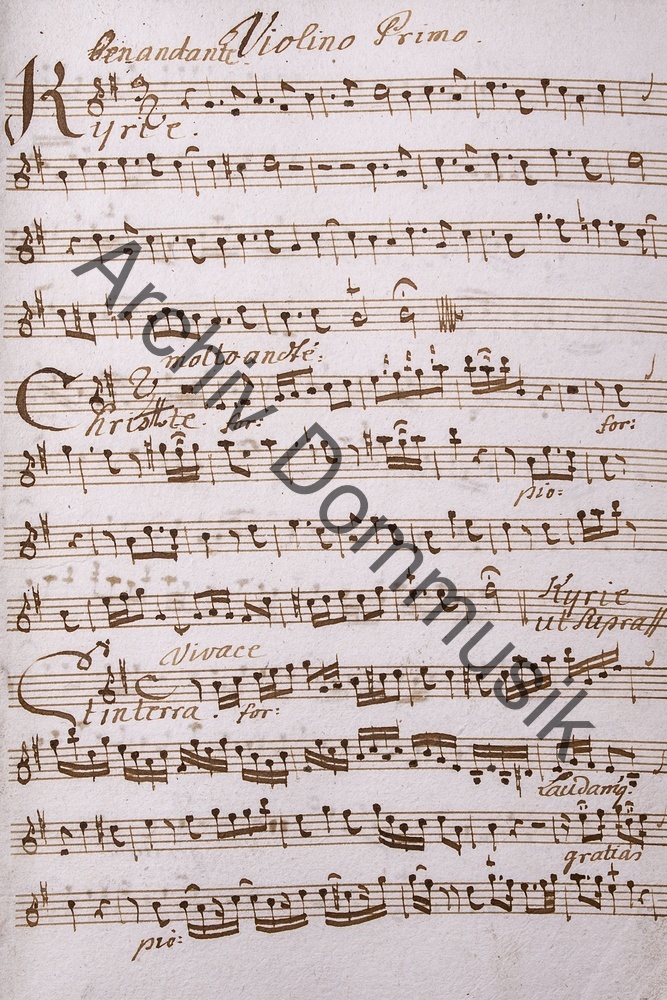 Violino Primo.
Benandante.
Kyrie.
molto andte:
Christe. for:
for:
pio:
Kyrie
ut Supra
Vivace
Et in terra. for:
Laudamq:
gratias
pio:
Archiv Dommusik